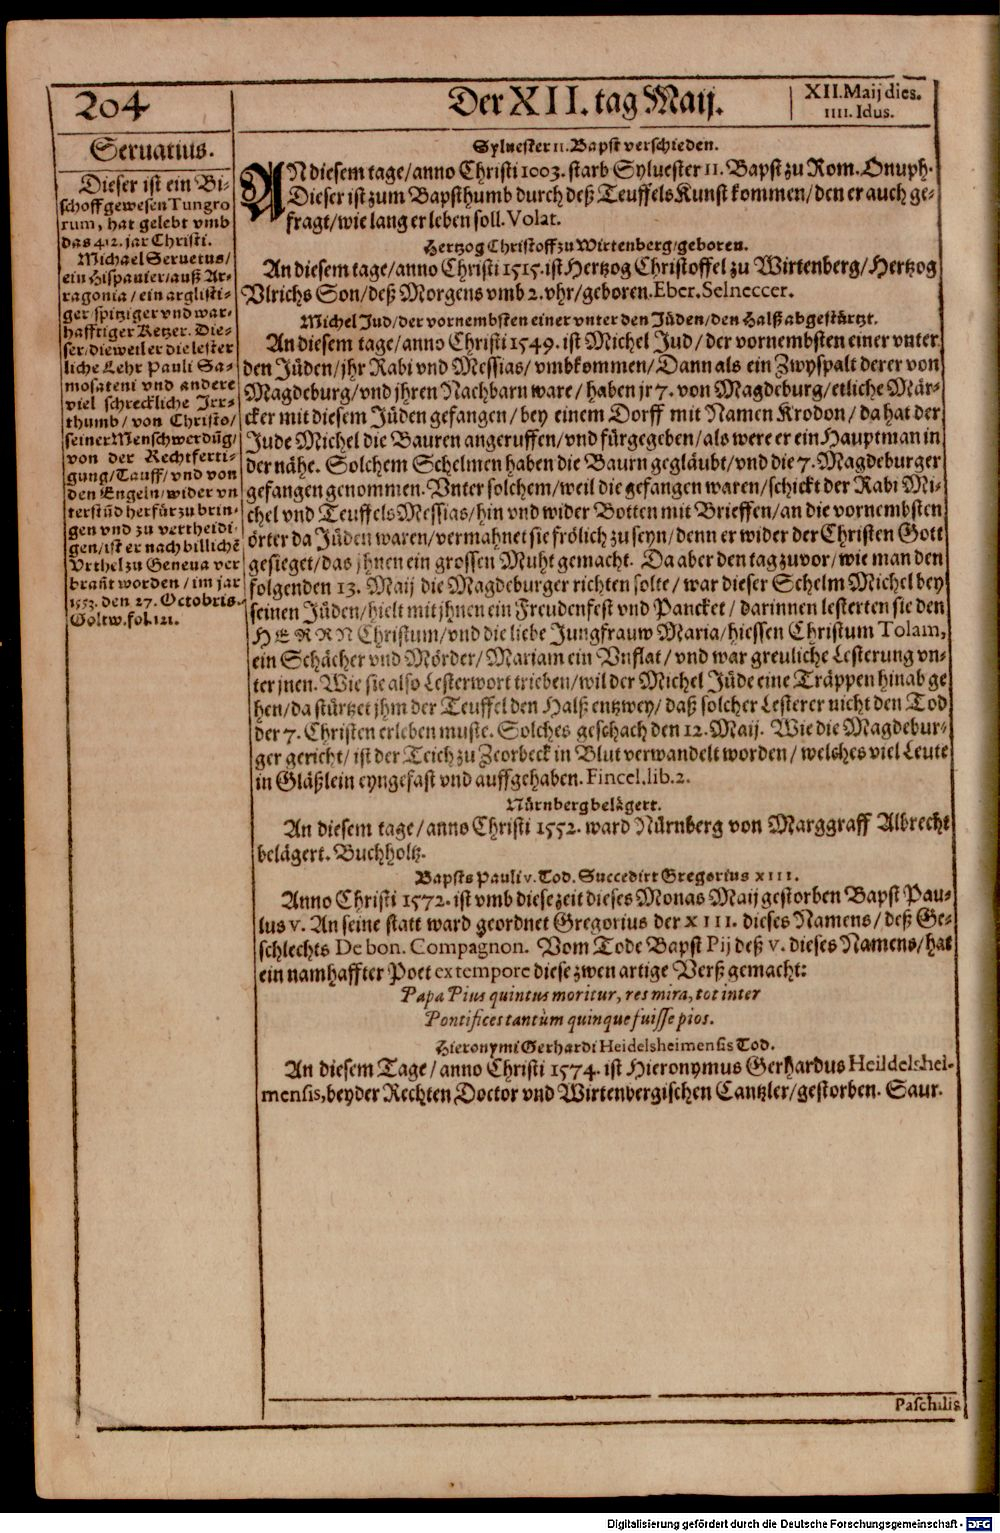 204
Der XII. tag Maij.
XII. Maij dies.
IIII. Idus.
Seruatius.
Dieser ist ein Bi-
schoff gewesen Tungro
rum, hat gelebt vmb
das 412. jar Christi.
Michael Seruetus/
ein Hispanier/ auß Ar-
ragonia / ein arglisti-
ger spitziger vnd war-
hafftiger Ketzer. Die-
ser/ dieweil er die lester
liche Lehr Pauli Sa-
mosateni vnd andere
viel schreckliche Irr-
thumb / von Christo/
seiner Menschwerdũg/
von der Rechtferti-
gung/ Tauff/ vnd von
den Engeln/ wider vn
terstũd herfür zu brin-
gen vnd zu vertheidi-
gen/ ist er nach billichẽ
Vrthel zu Geneua ver
brañt worden / im jar
1553. den 27. Octobris.
Goltw. fol. 121.
Syluester II. Bapst verschieden.
AN diesem tage/ anno Christi 1003. starb Syluester II. Bapst zu Rom. Onuph.
Dieser ist zum Bapsthumb durch deß Teuffels Kunst kommen/ den er auch ge-
fragt/ wie lang er leben soll. Volat.
Hertzog Christoff zu Wirtenberg/ geboren.
An diesem tage/ anno Christi 1515. ist Hertzog Christoffel zu Wirtenberg/ Hertzog
Vlrichs Son/ deß Morgens vmb 2. vhr/ geboren. Eber. Selneccer.
Michel Jud/ der vornembsten einer vnter den Jüden/ den Halß abgestürtzt.
An diesem tage/ anno Christi 1549. ist Michel Jud/ der vornembsten einer vnter
den Jüden/ jhr Rabi vnd Messias/ vmbkommen/ Dann als ein Zwyspalt derer von
Magdeburg/ vnd jhren Nachbarn ware/ haben jr 7. von Magdeburg/ etliche Mär-
cker mit diesem Jüden gefangen/ bey einem Dorff mit Namen Krodon/ da hat der
Jude Michel die Bauren angeruffen/ vnd fürgegeben/ als were er ein Hauptman in
der nähe. Solchem Schelmen haben die Baurn gegläubt/ vnd die 7. Magdeburger
gefangen genommen. Vnter solchem/ weil die gefangen waren/ schickt der Rabi Mi-
chel vnd Teuffels Messias/ hin vnd wider Botten mit Brieffen/ an die vornembsten
örter da Jüden waren/ vermahnet sie frölich zu seyn/ denn er wider der Christen Gott
gesieget/ das jhnen ein grossen Muht gemacht. Da aber den tag zuvor/ wie man den
folgenden 13. Maij die Magdeburger richten solte/ war dieser Schelm Michel bey
seinen Jüden/ hielt mit jhnen ein Freudenfest vnd Pancket / darinnen lesterten sie den
HERRN Christum/ vnd die liebe Jungfrauw Maria/ hiessen Christum Tolam,
ein Schächer vnd Mörder/ Mariam ein Vnflat / vnd war greuliche Lesterung vn-
ter jnen. Wie sie also Lesterwort trieben/ wil der Michel Jüde eine Träppen hinab ge
hen/ da stürtzet jhm der Teuffel den Halß entzwey/ daß solcher Lesterer nicht den Tod
der 7. Christen erleben muste. Solches geschach den 12. Maij. Wie die Magdebur-
ger gericht/ ist der Teich zu Zeorbeck in Blut verwandelt worden/ welshes viel Leute
in Gläßlein eyngefast vnd auffgehaben. Fincel. lib. 2.
Nürnberg belägert.
An diesem tage/ anno Christi 1552. ward Nürnberg von Marggraff Albrecht
belägert. Buchholtz.
Bapsts Pauli v. Tod. Succedirt Gregorius XIII.
Anno Christi 1572. ist vmb diese zeit dieses Monas Maij gestorben Bapst Pau-
lus v. An seine statt ward geordnet Gregorius der XIII. dieses Namens/ deß Ge-
schlechts De bon. Compagnon. Vom Tode Bapst Pij deß v. dieses Namens/ hat
ein namhaffter Poet ex tempore diese zwen artige Verß gemacht:
Papa Pius quintus moritur, res mira, tot inter
Pontifices tantùm quinque fuisse pios.
Hieronymi Gerhardi Heidelsheimensis Tod.
An diesem Tage/ anno Christi 1574. ist Hieronymus Gerhardus Heildelshei-
mensis, beyder Rechten Doctor vnd Wirtenbergischen Cantzler/ gestorben. Saur.
Paschilis
Digitalisierung gefördert durch die Deutsche Forschungsgemeinschaft - DFG